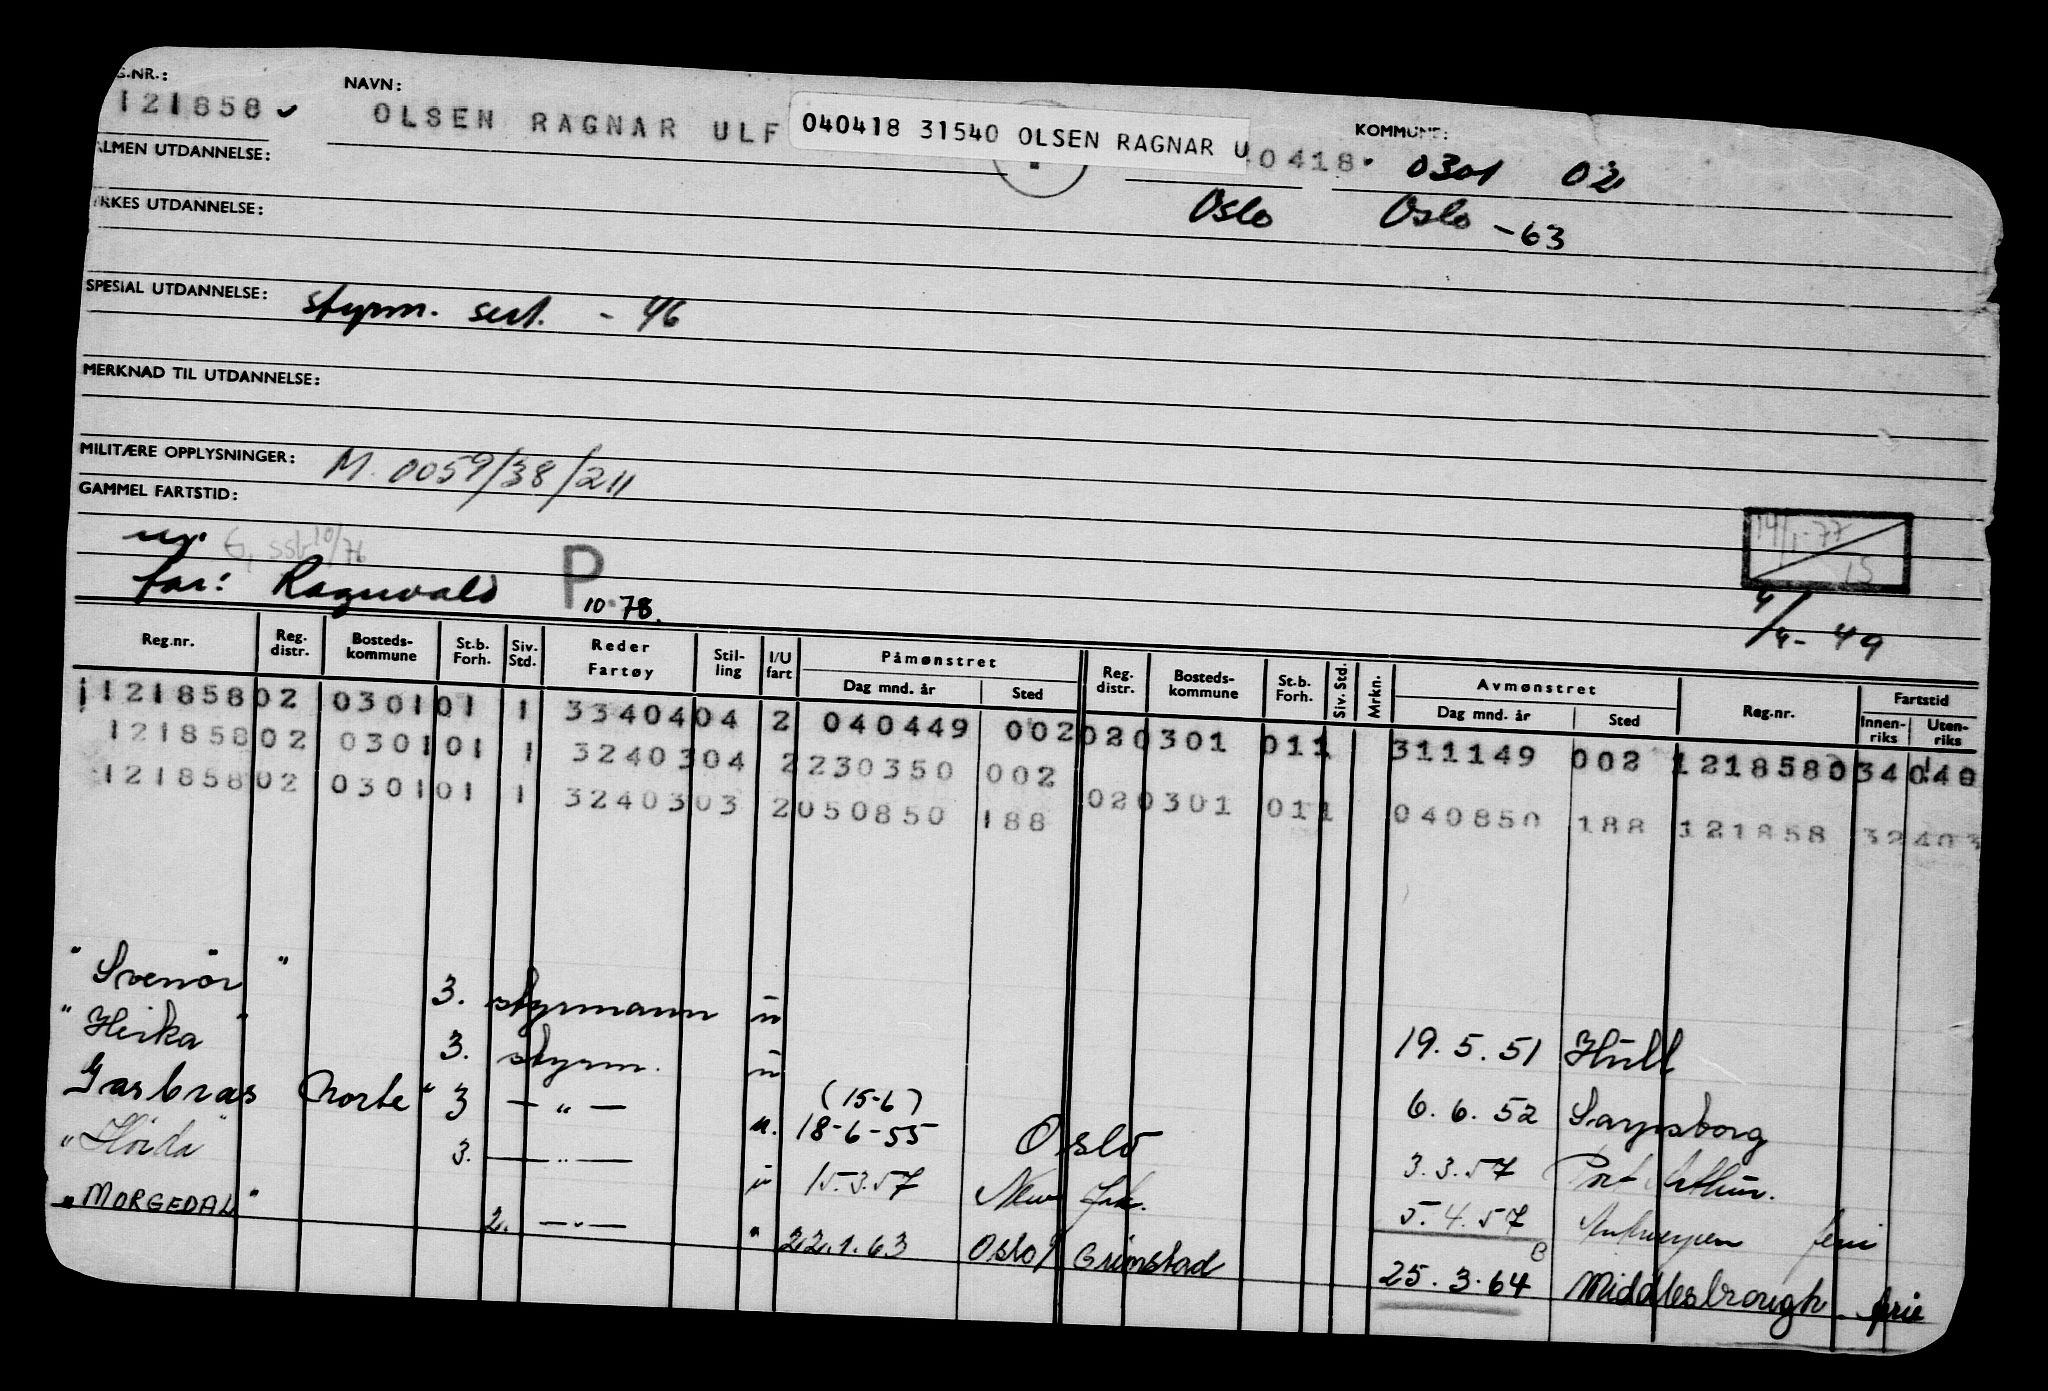 G.NR.: NAVN: KOMMUNE:
121858 OLSEN RAGNAR ULF 040418 31540 OLSEN RAGNAR U 0418 0301 02
ALMEN UTDANNELSE:
Oslo Oslo -63
YRKES UTDANNELSE:
SPESIAL UTDANNELSE: styrm. sert. - 46
MERKNAD TIL UTDANNELSE:
MILITÆRE OPPLYSNINGER: M. 0059/38/211
GAMMEL FARTSTID:
14/1-77
15
far: Ragnvald P 10.78. 4/4-49
Reg.nr. Reg. distr. Bosteds-kommune St.b. Forh. Siv. Std. Reder Fartøy Stil-ling I/U fart Påmønstret Dag mnd. år Sted Reg. distr. Bosteds-kommune St.b. Forh. Siv. Std. Mrkn. Avmønstret Dag mnd. år Sted Reg.nr. Fartstid Innen-riks Uten-riks
121858 02 0301 01 1 33404 04 2 040449 002 02 0301 01 1 311149 002 121858 0 34040
121858 02 0301 01 1 32403 04 2 230350 002 02 0301 01 1 040850 188 121858 32403
121858 02 0301 01 1 32403 03 2 050850 188
"Svenör" 3. styrmann u 19.5.51 Hull
"Heika" 3. styrm. u 6.6.52 Sarpsborg
Gasbras Norte" 3 — " — u. (15-6) 18-6-55 Oslo 3.3.57 Port Arthur.
"Höida" 3. — " — u 15.3.57 New York. 5.4.57 Antwerpen ferie
"MORGEDAL" 2. — " — " 22.1.63 Oslo/Grimstad 25.3.64 Middlesbrough. ferie